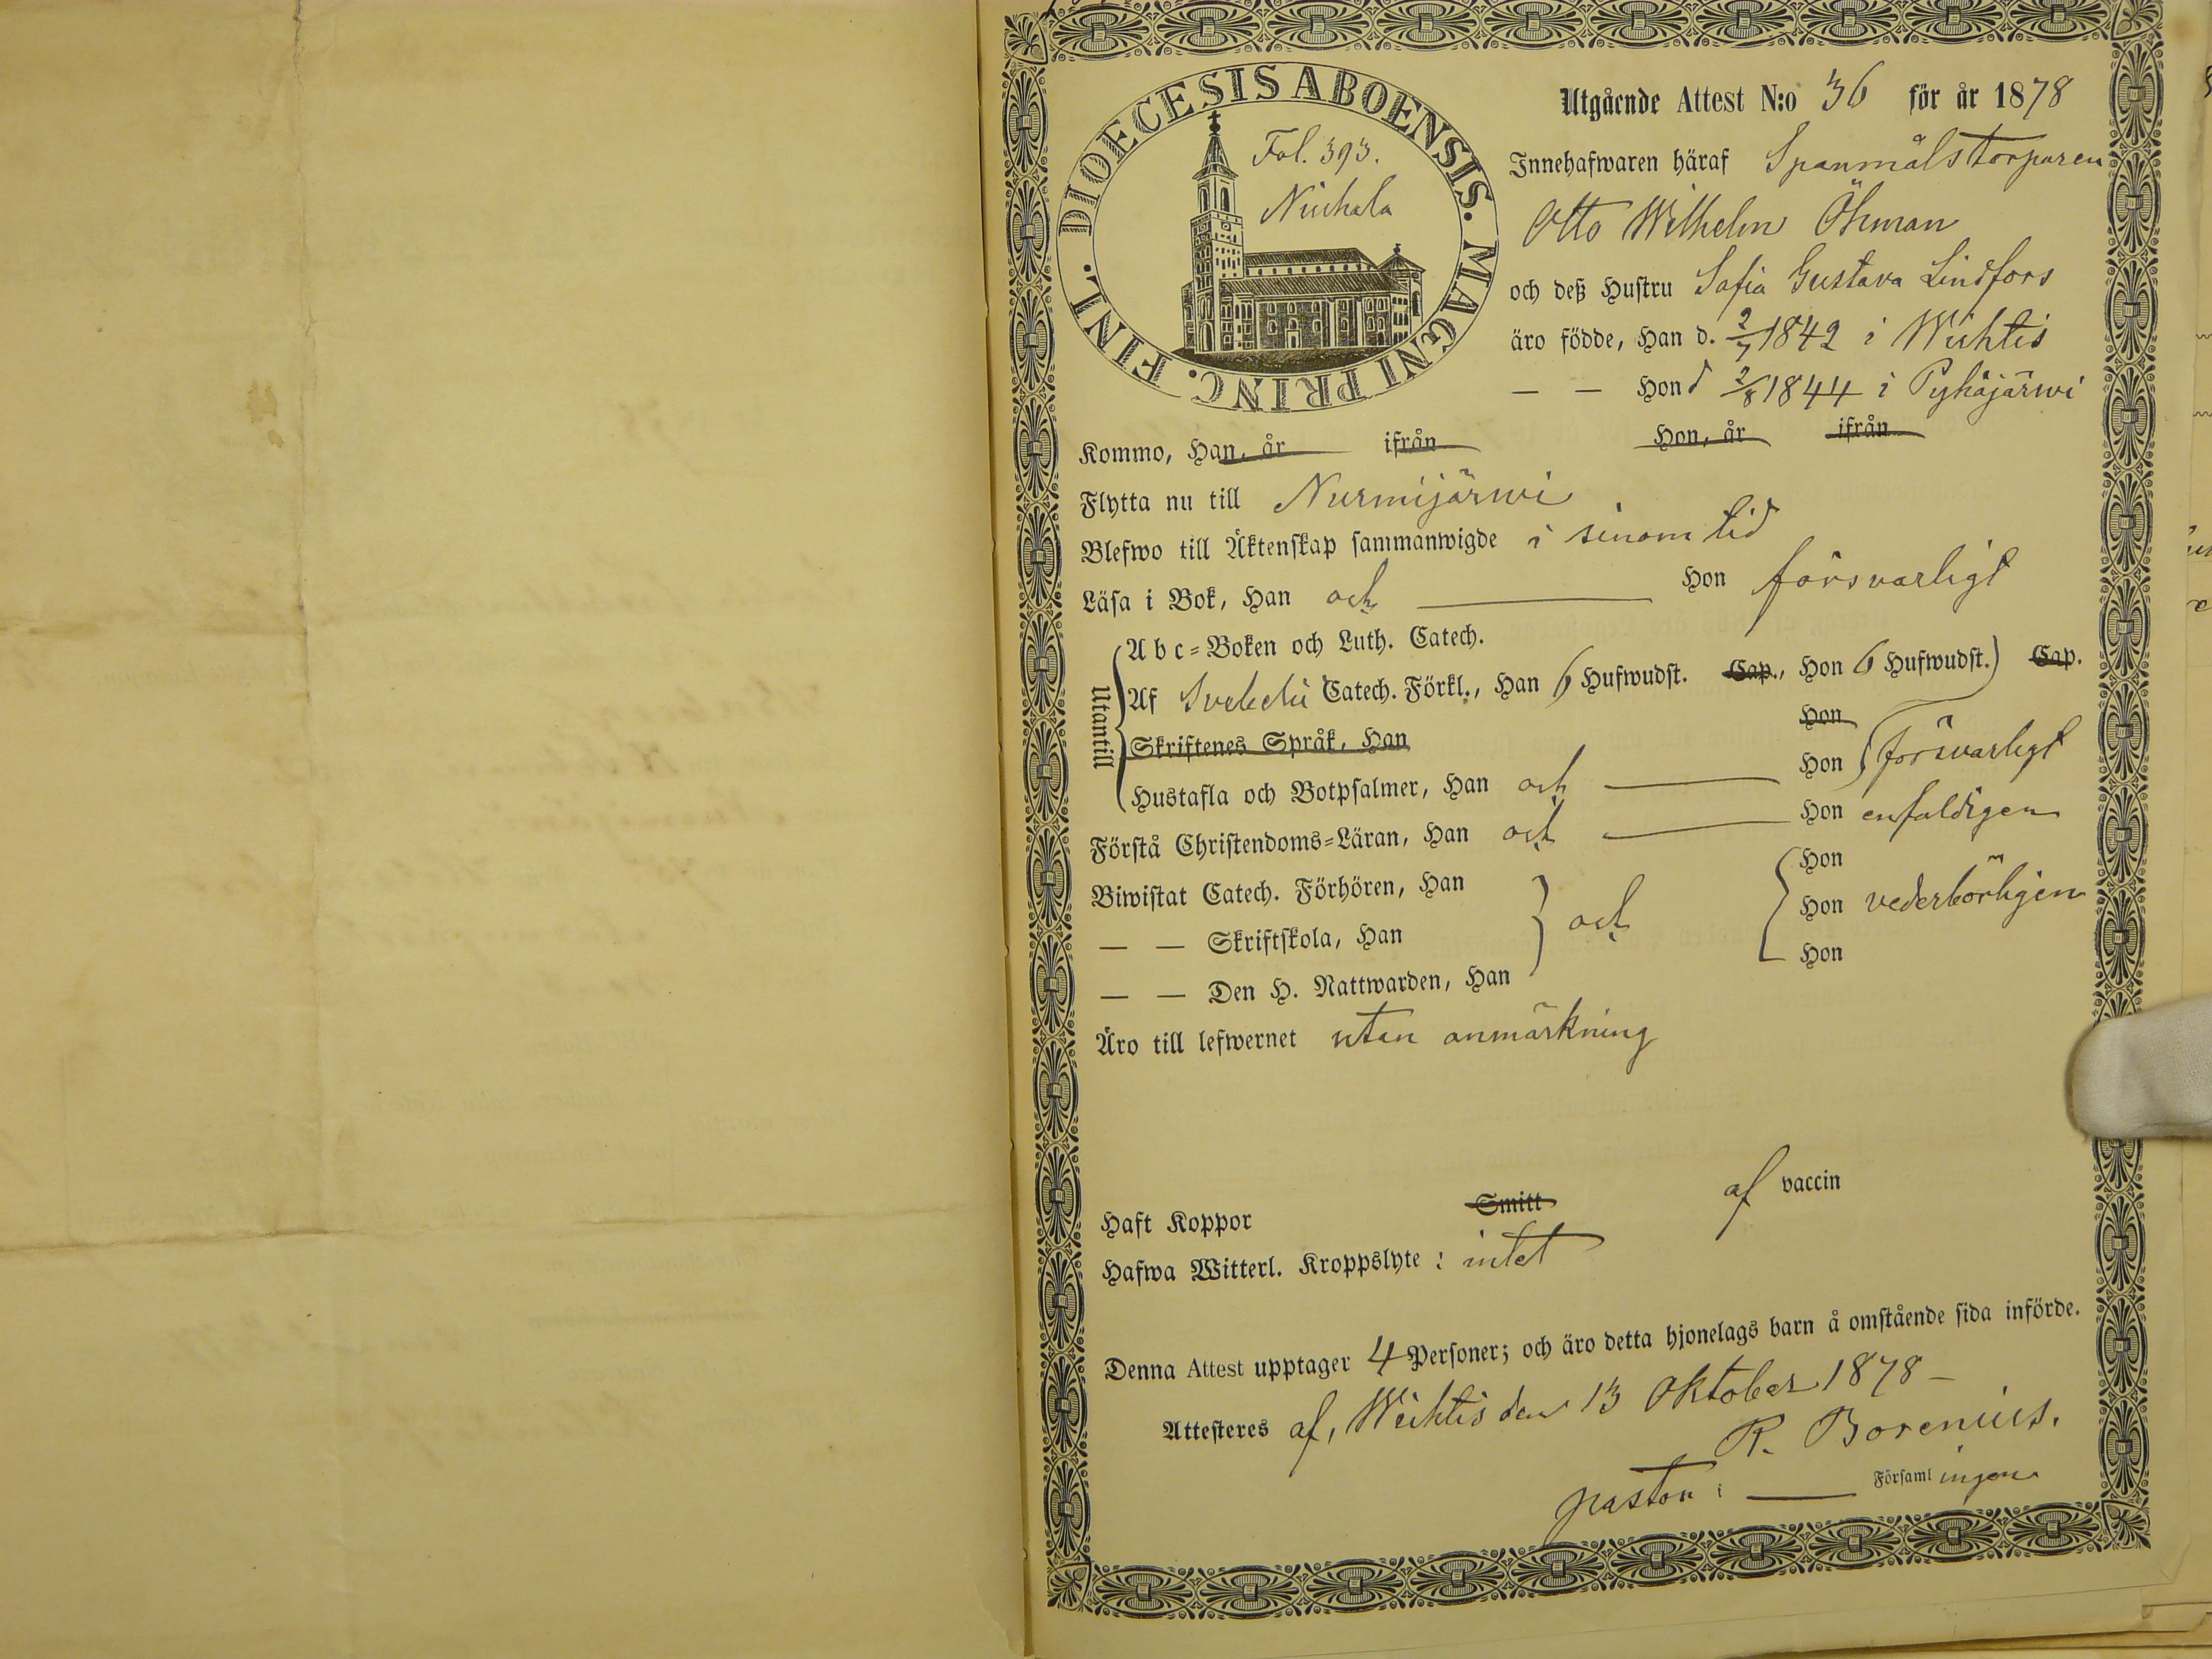 DIOECESIS ABOENSIS. MAGNI PRINC. FINL.
Fol. 393.
Utgående Attest N:o 36 för år 1878
Innehafwaren häraf Spanmålstorparen
Otto Wilhelm Öhman
och deß Hustru Sofia Gustava Lindfors
äro födde, Han d. 2/7 1842 i Wichtis
— — Hon d 2/8 1844 i Pyhäjärwi
Kommo, Han, år ifrån Hon, år ifrån
Flytta nu till Nurmijärwi
Blefwo till Äktenskap sammanwigde i sinom tid
Läsa i Bok, Han och — Hon försvarligt
Utantill
Abc=Boken och Luth. Catech.
Af Svebelii Catech. Förkl., Han 6 Hufwudst. Cap., Hon 6 Hufwudst.) Cap.
Skriftenes Språk, Han Hon
Hustafla och Botpsalmer, Han och — Hon försvarligt
Förstå Christendoms=Läran, Han och — Hon enfaldigen
Biwistat Catech. Förhören, Han Hon
— — Skriftskola, Han och Hon vederbörligen
— — Den H. Nattwarden, Han Hon
Äro till lefwernet utan anmärkning
Haft Koppor Smitt af vaccin
Hafwa Witterl. Kroppslyte : intet
Denna Attest upptager 4 Personer; och äro detta hjonelags barn å omstående sida införde.
Attesteres af, Wichtis den 13 Oktober 1878 —
R. Borenius.
pastor i — Församlingen